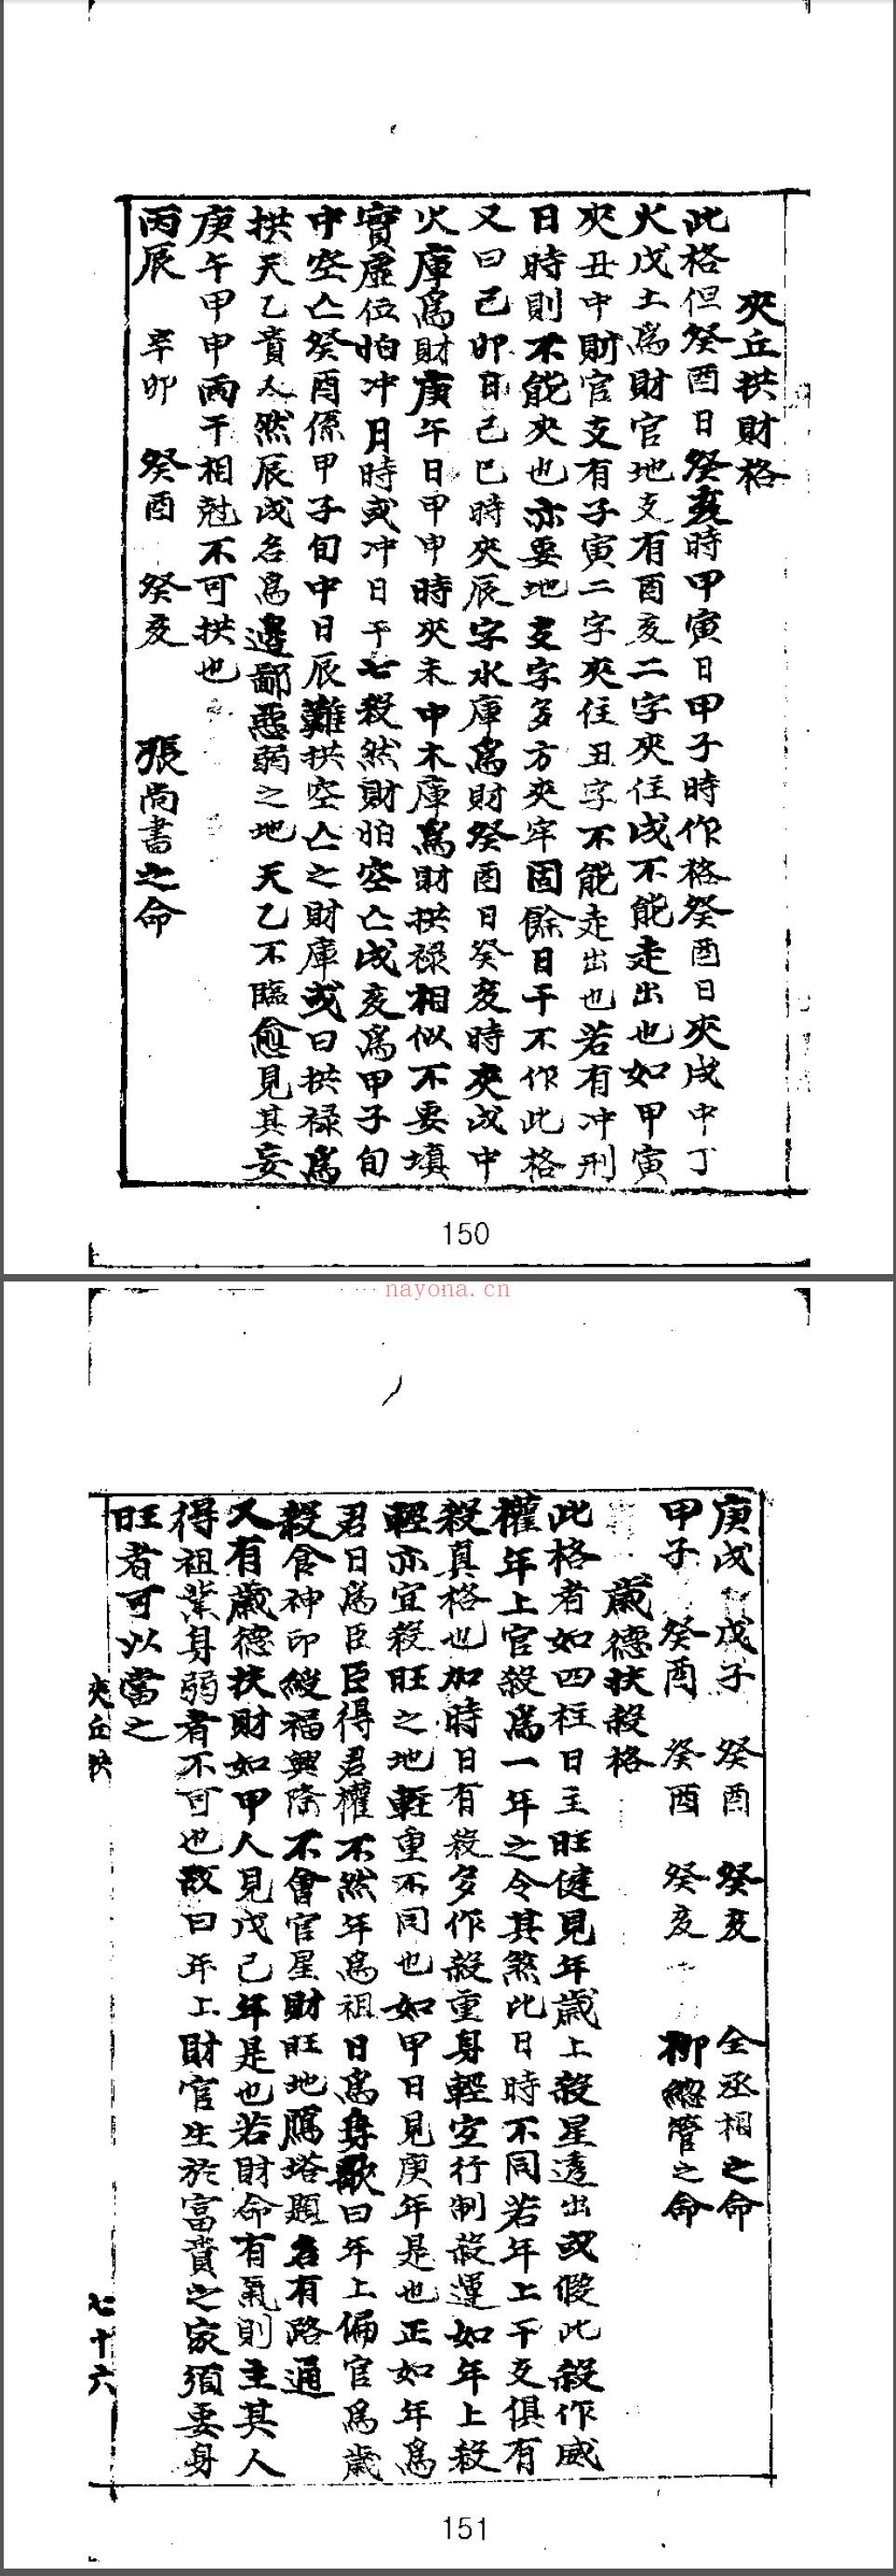 夾丘拱財格
此格但癸酉日癸亥時甲寅日甲子時作格癸酉日夾戌中丁
火戊土為財官地支有酉亥二字夾住戌不能走出也如甲寅
夾丑中財官支有子寅二字夾住丑字不能走出也若有冲刑
日時則不能夾也亦要地支字多方夾牢固餘日干不作此格
又曰己卯日己巳時夾辰字水庫為財癸酉日癸亥時夾戌中
火庫為財庚午日甲申時夾未中木庫為財拱禄相似不要填
實虛位怕冲月時或冲日干七殺然財怕空亡戌亥為甲子旬
中空亡癸酉係甲子旬中日辰難拱空亡之財庫或曰拱禄為
拱天乙貴人然辰戌名為邊鄙惡弱之地天乙不臨愈見其妄
庚午甲申兩干相尅不可拱也
丙辰 辛卯 癸酉 癸亥 張尚書之命
150
nayona.cn
庚戌 戊子 癸酉 癸亥 全丞相之命
甲子 癸酉 癸酉 癸亥 柳總管之命
歲德扶殺格
此格者如四柱日主旺健見年歲上殺星透出或假此殺作威
權年上官殺為一年之令其煞比日時不同若年上干支俱有
殺真格也加時日有殺多作殺重身輕宜行制殺運如年上殺
輕亦宜殺旺之地輕重不同也如甲日見庚年是也正如年為
君日為臣臣得君權不然年為祖日為身歌曰年上偏官為歲
殺食神印綬福興隆不會官星財旺地鴈塔題名有路通
又有歲德扶財如甲人見戊己年是也若財命有氣則主其人
得祖業身弱者不可也故曰年上財官生於富貴之家須要身
旺者可以當之
夾丘拱
七十六
151